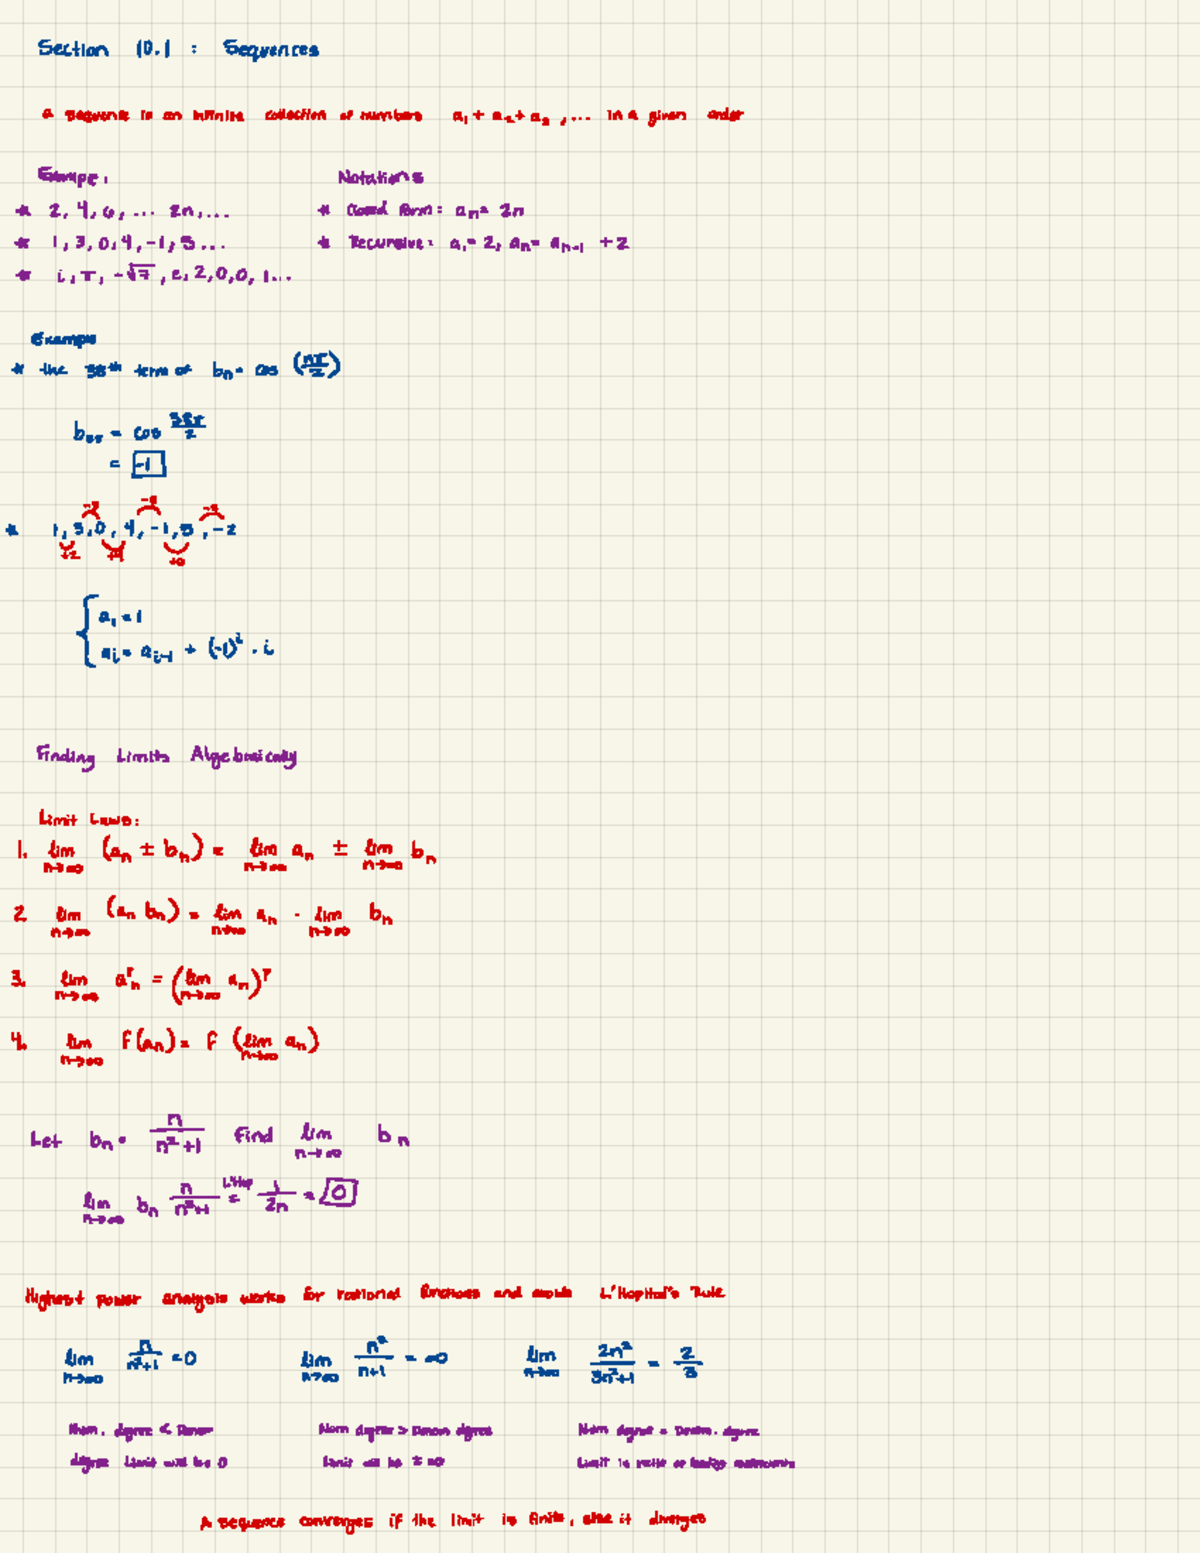 Section 10.1 : Sequences
a sequence is an infinite collection of numbers a₁ + a₂ + a₃ ,... in a given order
Exampe: Notations
* 2, 4, 6, ... 2n, ... * Closed form: aₙ = 2n
* 1, 3, 0, 4, -1, 5 ... * Recursive: a₁ = 2, aₙ = aₙ₋₁ + 2
* i, π, -√7, e, 2, 0, 0, 1...
Example
* the 38th term of bₙ = cos (nπ/2)
b₃₈ = cos 38π/2
= -1
-3 -5
* 1, 3, 0, 4, -1, 5, -2
+2 +4
{ a₁ = 1
aᵢ = aᵢ₋₁ + (-1)ⁱ · i
Finding Limits Algebraically
Limit Laws:
1. lim n→∞ (aₙ ± bₙ) = lim n→∞ aₙ ± lim n→∞ bₙ
2 lim n→∞ (aₙ bₙ) = lim n→∞ aₙ · lim n→∞ bₙ
3. lim n→∞ aʳₙ = (lim n→∞ aₙ)ʳ
4. lim n→∞ f(aₙ) = f (lim n→∞ aₙ)
Let bₙ = n/(n²+1) find lim n→∞ bₙ
lim n→∞ bₙ n/(n²+1) L'Hop = 1/2n = 0
Highest power analysis works for rational functions and avoids L'Hopital's Rule
lim n→∞ n/(n²+1) = 0 lim n→∞ n²/(n+1) = ∞ lim n→∞ 2n²/(3n²+1) = 2/3
Num. degree < Denom Num degree > Denom degree Num degree = Denom. degree
degree Limit will be 0 limit will be ± ∞ Limit is ratio of leading
A sequence converges if the limit is finite, else it diverges